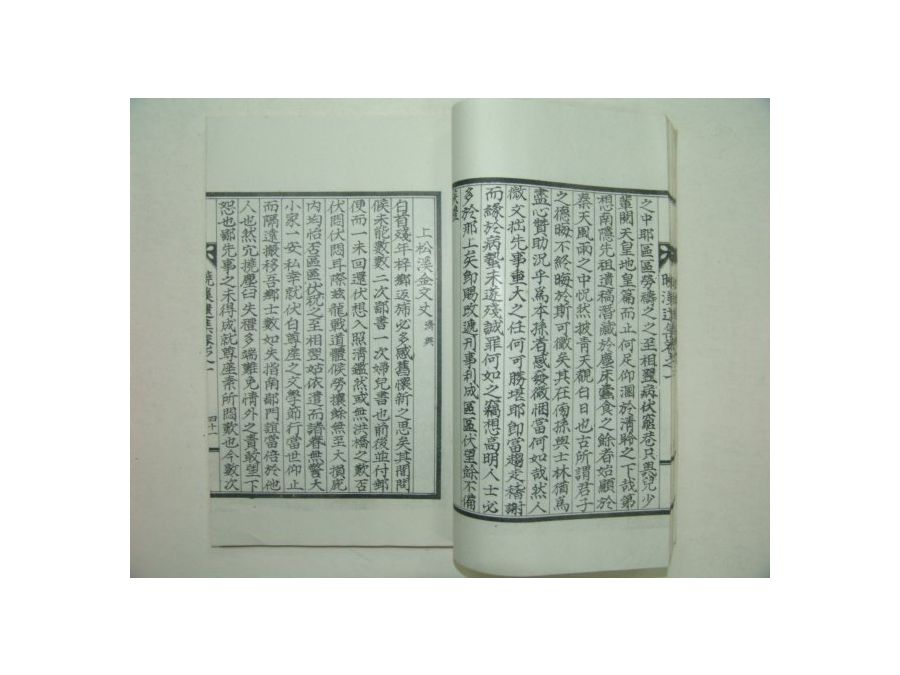 之中耶區區勞禱之之至相翌病伏窮巷只與兒少
輩閱天皇地皇篇而止何足仰溷於淸聆之下哉第
想南隱先祖遺稿潛藏於塵床蠹食之餘者始顯於
秦天風雨之中怳然披靑天覩白日也古所謂君子
之德晦不終晦於斯可徵矣其在傍孫與士林猶爲
盡心贊助況乎爲本孫者感發微悃當何如哉然人
微文拙先事重大之任何可勝堪耶卽當趨走稽謝
而緣於病蟄未遂殘誠罪何如之竊想高明人士必
多於那上矣卽賜改遞刊事利成區區伏望餘不備
上松溪金文丈 濟興
白首殘年梓鄕返旆必多感舊懷新之思矣其閒問
候未能數數二次鄙書一次婦兒書也前後並付郵
便而一未回還伏想入照淸鑑然或無洪橋之歎否
伏悶伏悶耳際玆龍戰道體候勞攘餘無至大損庇
內均怡否區區伏祝之至相翌姑依遣而諸眷無警大
小家一安私幸就伏白尊座之文學節行當世仰止
而隔遠搬移吾鄕士數如失指南鄙門誼當倍於他
人也然宂擾塵臼失禮多端難免情外之責敢望下
恕也鄙先事之未得成就尊座素所悶歎也今數次
四十